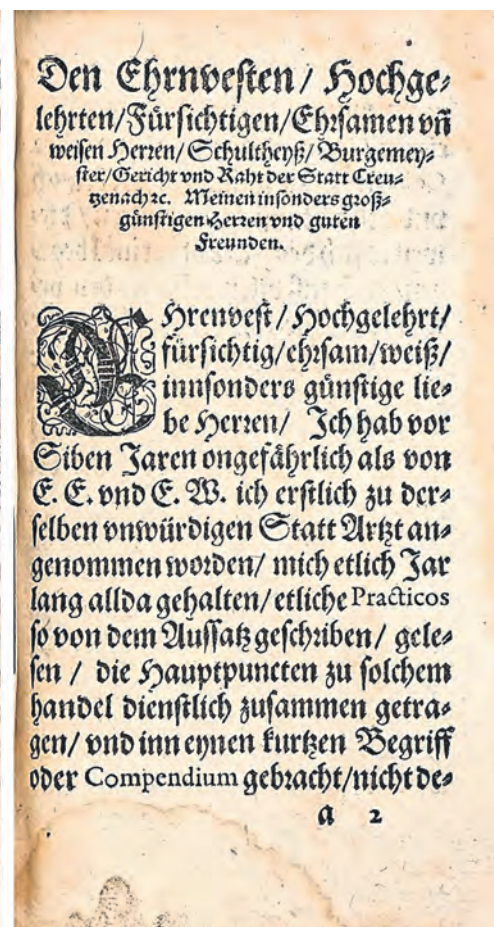 Den Ehrnvesten / Hochge-
lehrten/Fürsichtigen/Ehrsamen vn̄
weisen Herren/ Schultheyß/ Burgemey-
ster/Gericht vnd Raht der Statt Creu-
tzenach ꝛc. Meinen insonders groß-
günstigen Herren vnd guten
Freunden.
EHrenvest / Hochgelehrt/
fürsichtig/ehrsam/weiß/
innsonders günstige lie-
be Herren/ Ich hab vor
Siben Jaren ongefährlich als von
E. E. vnd E. W. ich erstlich zu der-
selben vnwürdigen Statt Artzt an-
genommen worden/ mich etlich Jar
lang allda gehalten/ etliche Practicos
so von dem Aussatz geschriben/ gele-
sen / die Hauptpuncten zu solchem
handel dienstlich zusammen getra-
gen/ vnd inn eynen kurtzen Begriff
oder Compendium gebracht/nicht de-
a 2